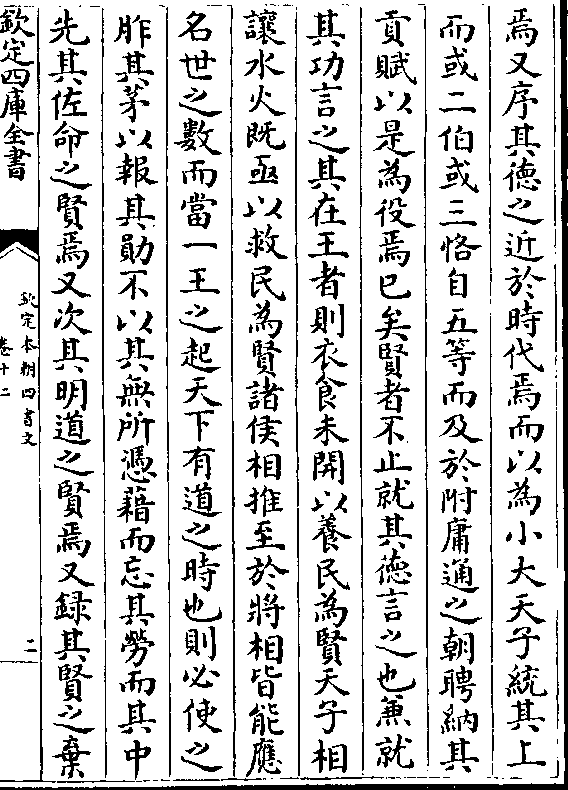 焉又序其德之近於時代焉而以為小大天子統其上
而或二伯或三恪自五等而及於附庸通之朝聘納其
貢賦以是為役焉已矣賢者不止就其德言之也兼就
其功言之其在王者則衣食未開以養民為賢天子相
讓水火既亟以救民為賢諸侯相推至於將相皆能應
名世之數而當一王之起天下有道之時也則必使之
胙其茅以報其勛不以其無所憑藉而忘其勞而其中
先其佐命之賢焉又次其明道之賢焉又録其賢之棄
欽定四庫全書
欽定本朝四書文
卷十二
二